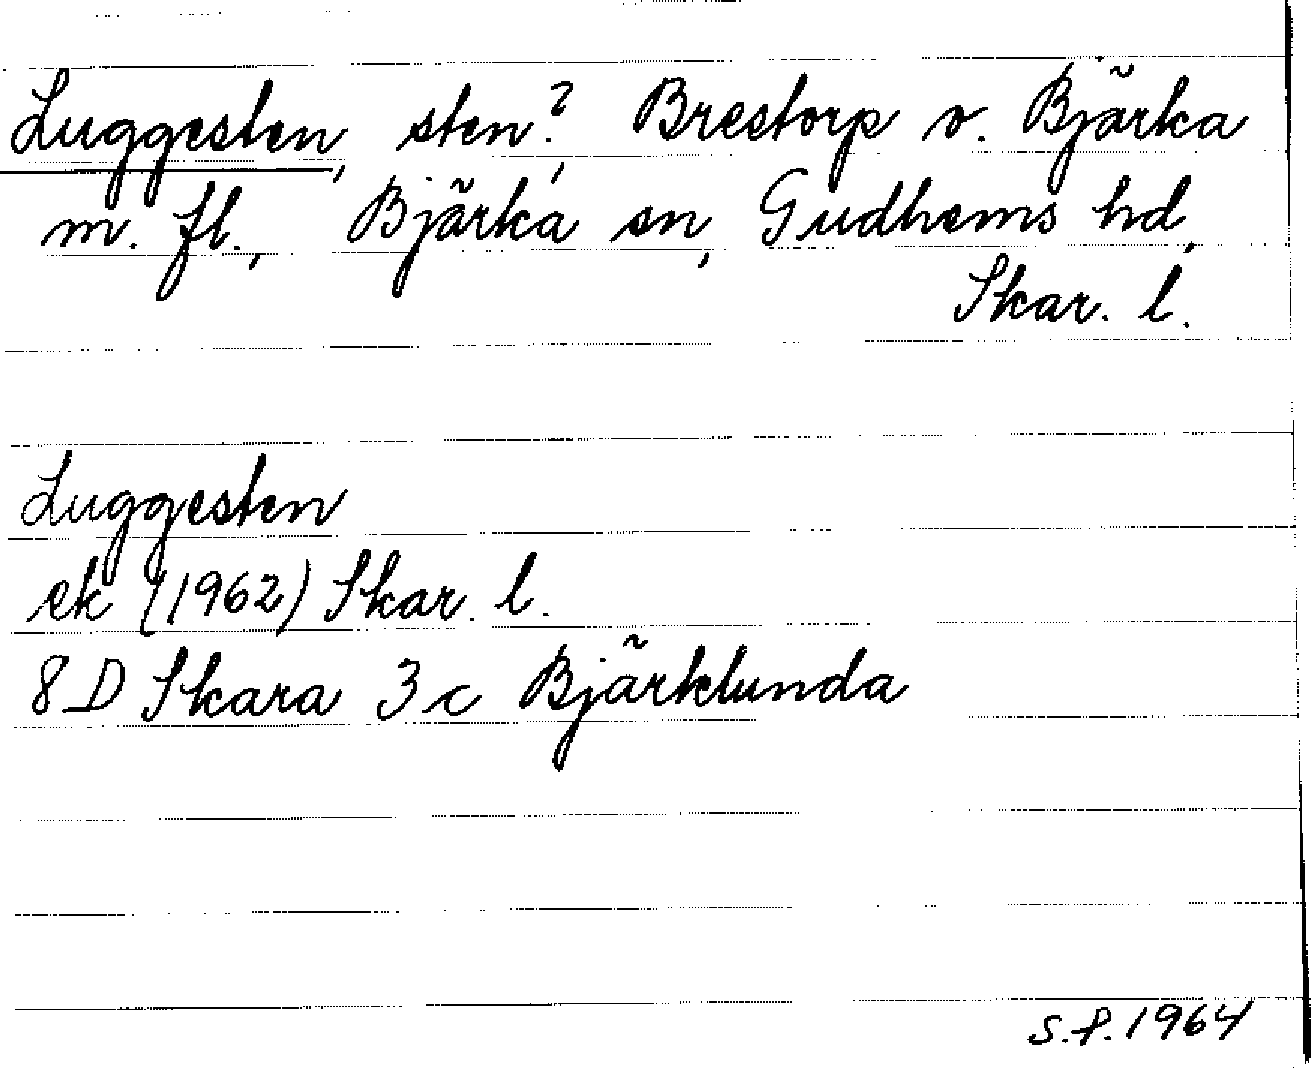 Luggesten, sten?, Brestorp v. Bjärka
m. fl., Bjärka sn, Gudhems hd,
Skar. l.
Luggesten
ek (1962) Skar. l.
8D Skara 3c Bjärklunda
S.P. 1964